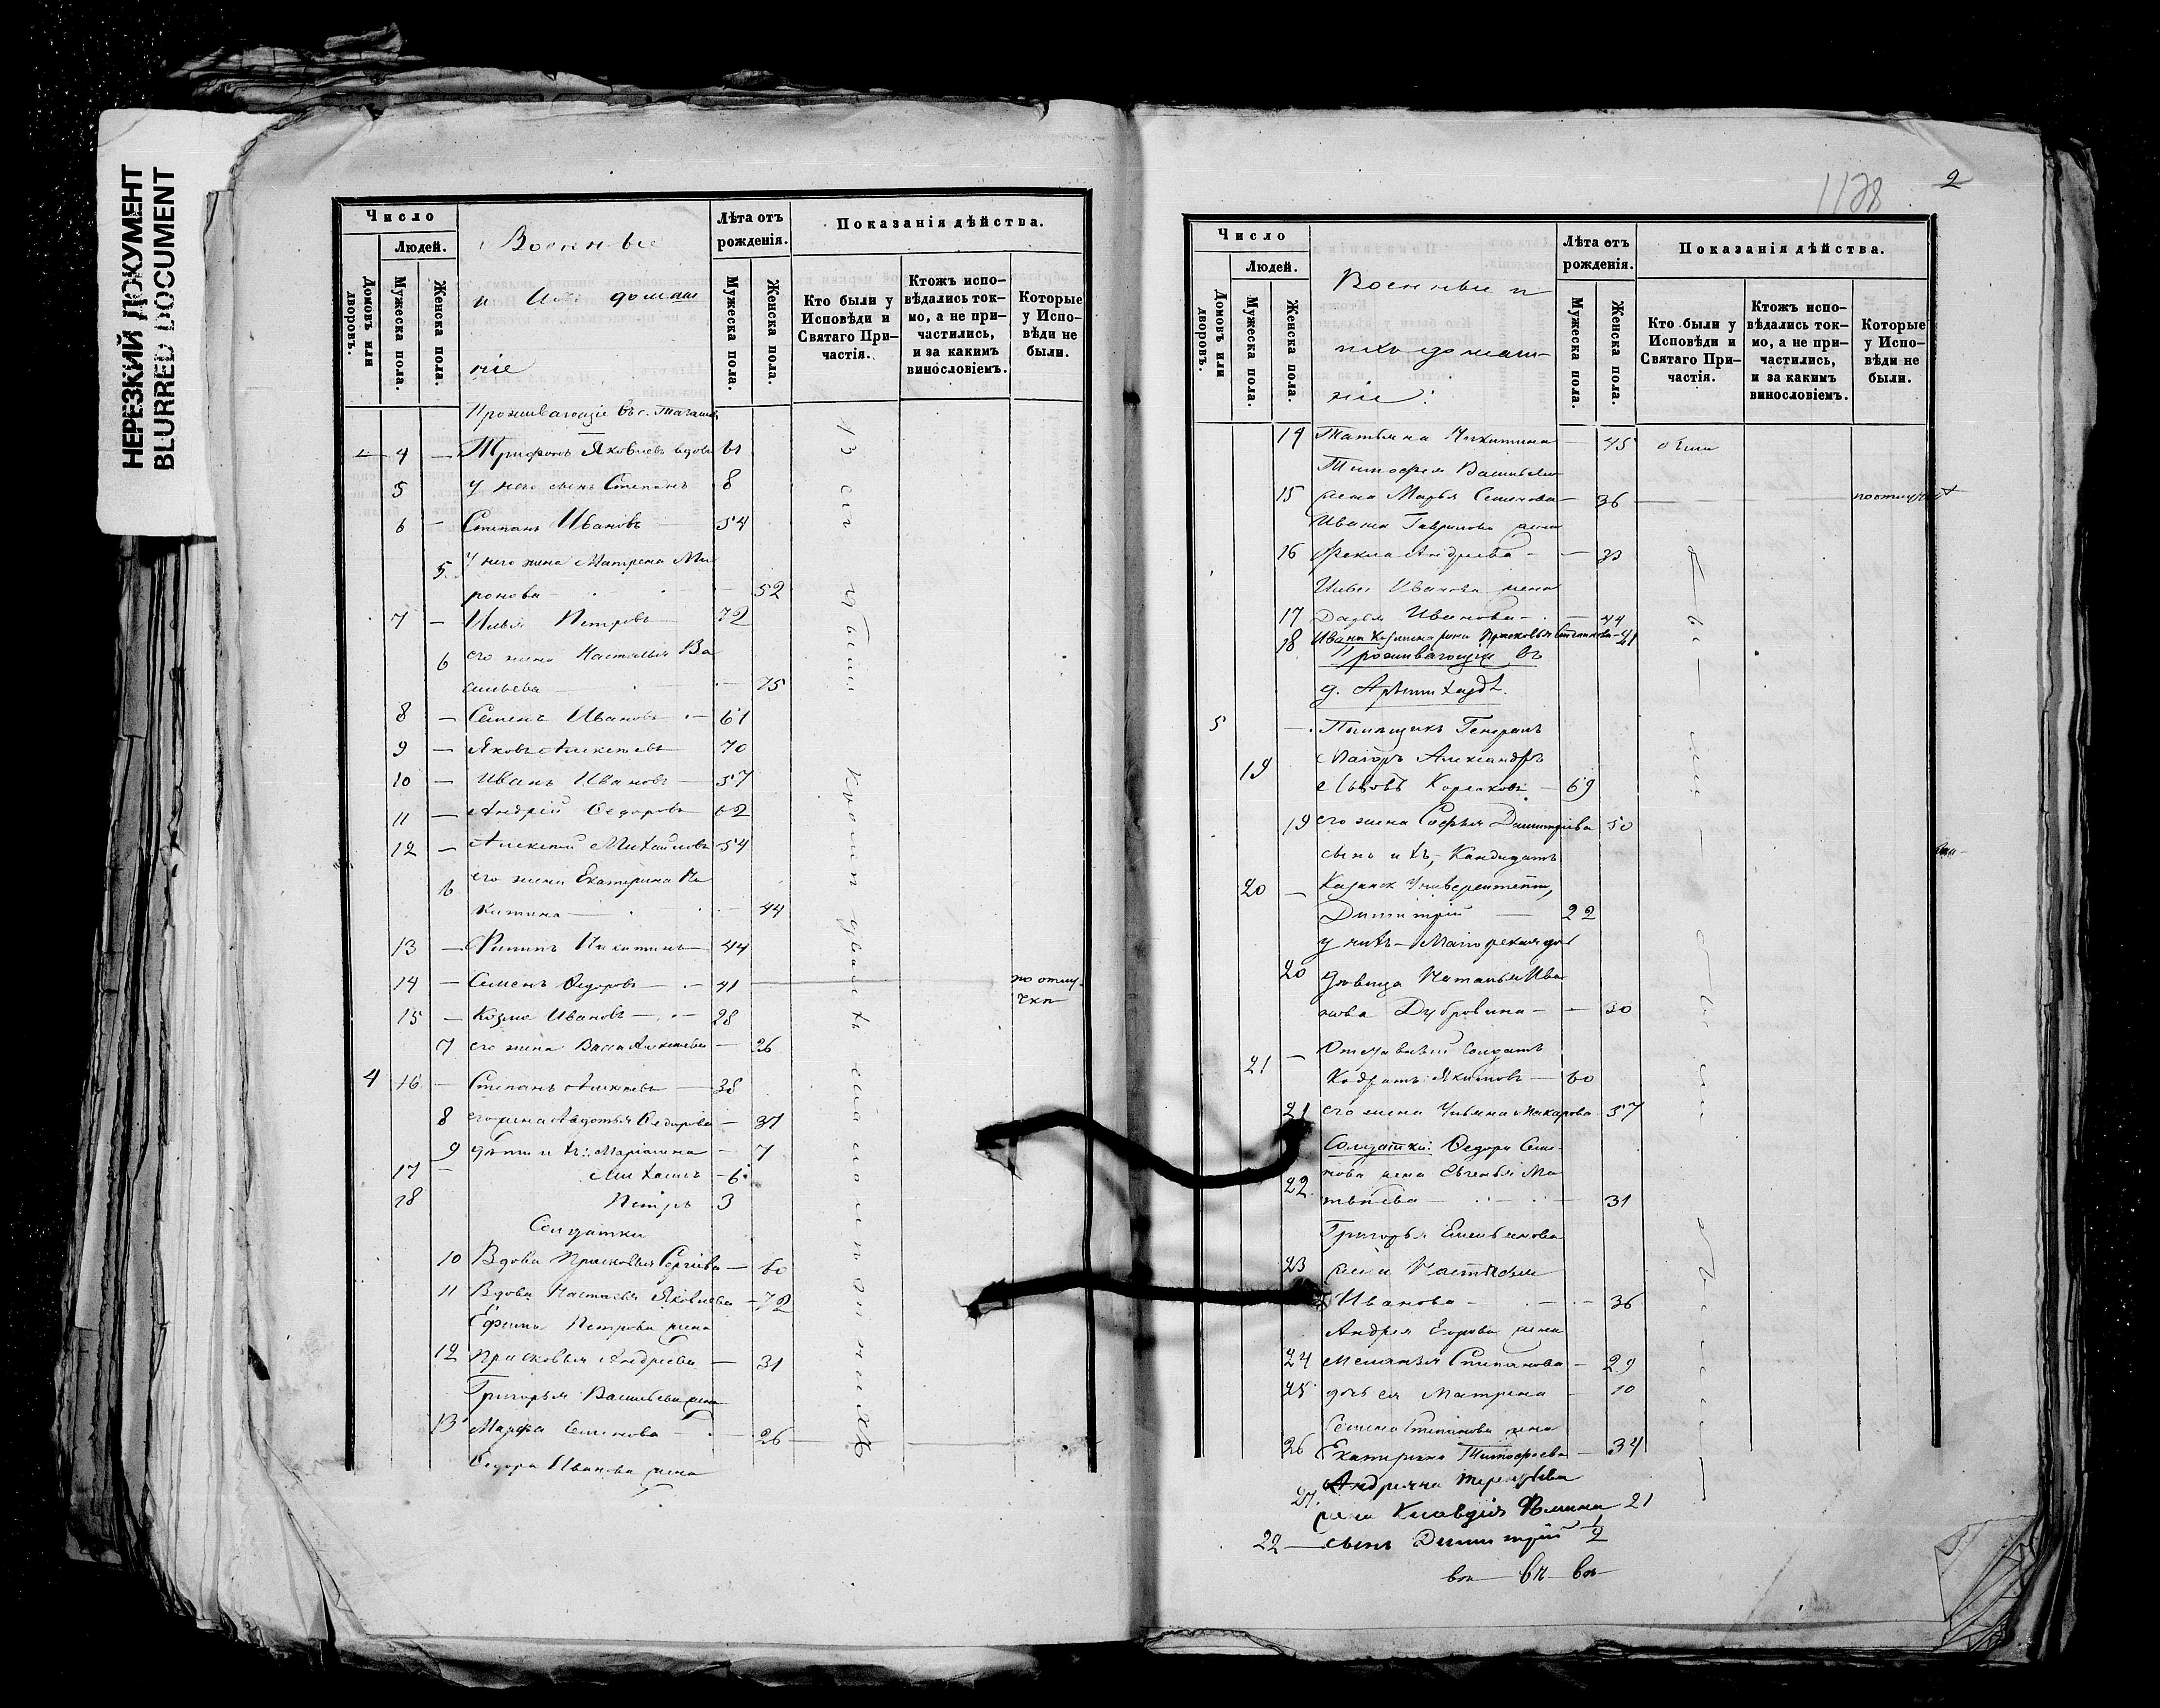 НЕРЕЗКИЙ ДОКУМЕНТ
BLURRED DOCUMENT
Число
Людей.
Домовъ или дворовъ.
Мужеска пола.
Женска пола.
Военные
и ихъ домаш
ніе
Лѣта отъ рожденія.
Мужеска пола.
Женска пола.
Показанія дѣйства.
Кто были у Исповѣди и Святаго Причастія.
Ктожъ исповѣдались токмо, а не причастились, и за какимъ винословіемъ.
Которые у Исповѣди не были.
Проживающіе въ с.
4 — Трифонъ Яковлевъ вдовъ 61
5 У него сынъ Степанъ 8
6 — Степанъ Ивановъ — 54
5 У него жена Матрена Ми
ронова — 52
7 — Илья Петровъ — 72
6 его жена Настасья Ва
сильева — 75
8 — Семенъ Ивановъ — 61
9 — Яковъ Алексѣевъ 70
10 — Иванъ Ивановъ — 57
11 — Андрей Ѳедоровъ 62
12 — Алексѣй Михайловъ 54
6 его жена Екатерина Ни
китина — 44
13 — Филипъ Никитинъ 44
14 — Семенъ Ѳедоровъ — 41 по отлу-
чкѣ
15 — Козма Ивановъ — 28
7 его жена Васса Алексѣева — 26
4 16 — Степанъ Алексѣевъ — 38
8 его жена Авдотья Ѳедорова — 31
9 дѣти ихъ: Маріамна — 7
17 — Михаилъ — 6
18 Петръ 3
Солдатки
10 Вдова Прасковья Сергіева — 60
11 Вдова Настасья Яковлева — 72
Ефима Петрова жена
12 Прасковья Андреева — 31
Григорья Васильева жена
13 Марфа Семенова — 26
Ѳедора Иванова жена
Всѣ были кромѣ двухъ
1128
2
Число
Людей.
Домовъ или дворовъ.
Мужеска пола.
Женска пола.
Военные и
ихъ домаш-
ніе:
Лѣта отъ рожденія.
Мужеска пола.
Женска пола.
Показанія дѣйства.
Кто были у Исповѣди и Святаго Причастія.
Ктожъ исповѣдались токмо, а не причастились, и за какимъ винословіемъ.
Которые у Исповѣди не были.
14 Татьяна Никитина — 45 были
Тимофея Васильева
15 жена Марья Семенова — 36
Ивана Гаврилова жена
16 Фекла Андреева — 33
Ильи Иванова жена
17 Дарья Иванова — 44
18 Ивана Козмина жена Прасковья Степанова — 41
Проживающіе въ
д.
5 — Помѣщикъ Генералъ
19 Маіоръ Александръ
Львовъ Корсаковъ — 69
19 его жена Софья Димитріева 50
сынъ ихъ, Кандидатъ
20 — Казанск Университета,
Димитрій — 22
у нихъ — Маіорская до
20 дѣвица Наталья Ива
нова Дубровина — 30
21 — Отставный солдатъ
Кодратъ Якимовъ — 60
21 его жена Ульяна Макарова 57
Солдатки: Ѳедора Семе-
22 нова жена Евгенья Ма
твѣева — 31
Григорья Емельянова
23 жена Настасья
Иванова — 36
Андрея Егорова жена
24 Меланья Степанова — 29
25 дочь ея Матрена — 10
Семена Степанова жена
26 Екатерина Тимофеева — 34
Андреяна Терентьева
27. жена Клавдія Ѳомина 21
22 — сынъ Димитрій ½